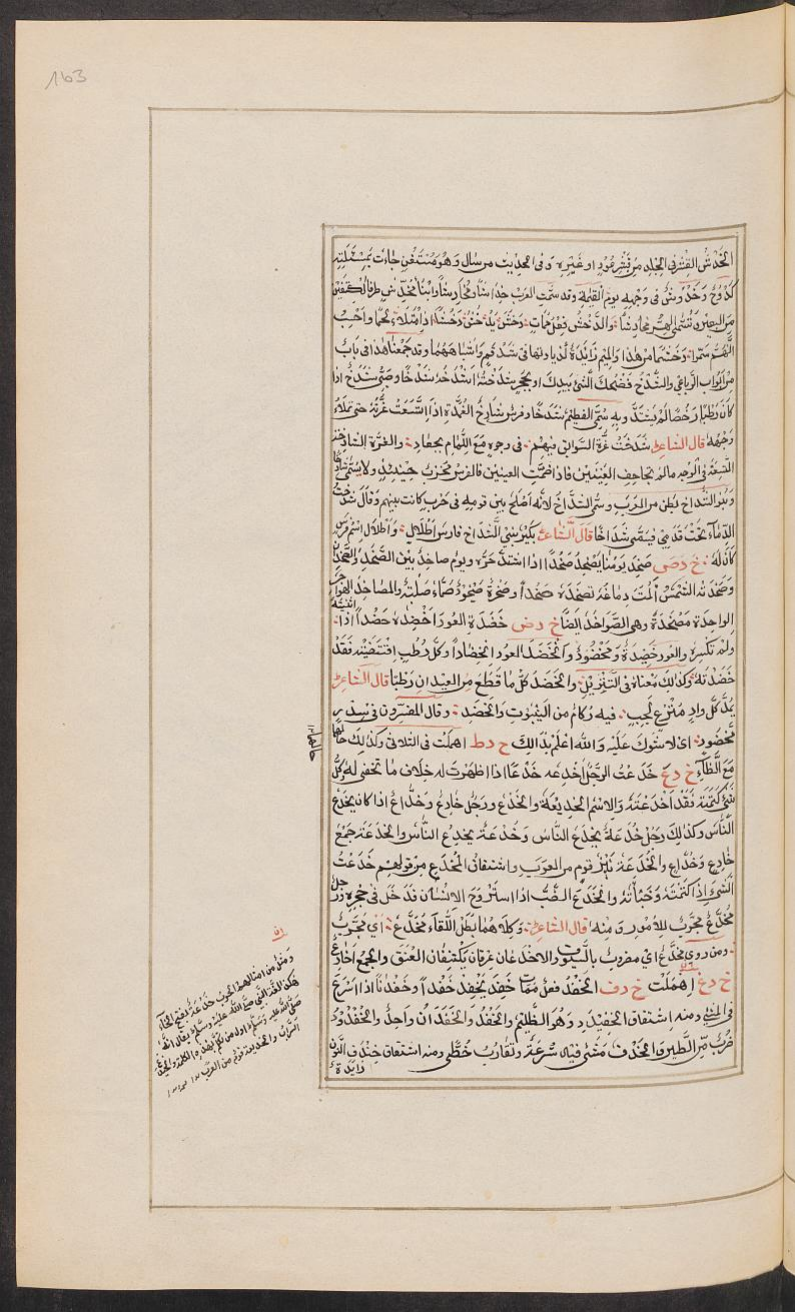 163
الخَدْش القَشْر في الجلد مِن قَشْرِ عُودٍ او غَيْرِهِ وفى الحديث من سال وَهُوَ مُسْتَغْنٍ جاءَت مَسْئَلَتِه
كُدُوحٌ وَخُدُوشٌ فى وَجْهِهِ يَومَ القيٰمة وقد سمّت العرب خِداشًا ومُخَادِشًا وَابْنَا مُخَدَّشٍ طرفا الكَتِفَيْنِ
مِنَ البعير وتُسَمَّى الهِرَّة مُخَادِشًا والدَّخْشُ فِعْلٌ مُمَاتٌ دَخِشَ يَدْخَشُ دَخَشًا اذا امْتَلَأَ لَحْمًا وأحْسِب
أَنَّهُم سَمَّوْا دَخْشَمًا من هٰذا والميم زَائِدَةٌ كزيادتها فى شَدْقَم وَاشباههما وقد جمعنا هٰذا فى باب
من ابواب الرّباعي والشَّدْخ فَضْخك الشَّيْ بِيَدِك او بحَجَرٍ شَدَخْتُهُ أَشْدَخُه شَدْخًا وصَبِيّ شَدَخٌ اذا
كَانَ رَطْبًا رَخْصًا لَم يَشْتَدَّ وبِهِ سُمِّيَ الفَطِيْم شَدَخًا وفرسٌ شَادِخُ الغُرَّة اِذا اتَّسَعَتْ غُرَّتُهُ حتى تملأ
وَجْهَهُ قال الشاعر شَدَخَتْ غُرَّة السَّوابق فيهِم فى وجوهٍ مَعَ اللِّمَام الجعاد والغرّة الشادخة
المتّسِعَة فى الوَجه مالم تجاحف العَيْنَين فاذا غَمَّتِ العينين فالفرس مُغْرَب حِينَئِذٍ ولا يُسَمَّى شادِخًا
وبنو الشَّدَّاخ بَطن من العَرَب وسُمِّي الشدَّاخ لأنّه اَصْلَحَ بين قومه فى حَرْب كانت بينهم وَقَالَ شَدَخْتُ
الدِّمَاءَ تحْتَ قَدَمِي فَسُمِّي شَدَّاخًا قال الشاعر بَكْرُ بَنِي الشَّدَّاخ فارس أَطْلَالِ وأطْلَال اسْم فَرَسٍ
كَانَ لَهُ خ د ص صَخِد يَومُنا يَصْخَدُ صَخْدًا اذا اشتدّ حَرُّه ويوم صاخِدٌ بيّن الصَّخْد والصَّخَدَان
وَصَخَدَتْهُ الشَّمْسُ آلَمَتْ دِمَاغَهُ تَصْخَدُهُ صَخْدًا وصَخْرَةٌ صَيْخُودٌ صَمَّاءُ صُلْبَةٌ والمَصَاخِدُ الهواجر
الواحِدَة مَصْخَدَةٌ وهى الصَّوَاخِدُ ايضًا خ د ض خَضَدْتُ العُودَ أَخْضِدُهُ خَضْدًا اذا ثنيته
ولم تكسِره والعُود خَضِيد وَمَخْضُودٌ وَانْخَضَدَ العود انخِضَادًا وكُلُّ رَطْبٍ اقْتَضَبْتَه فَقَدْ
خَضَدْتَهُ وكذلك مَعْنَاهُ فى التَّنْزِيل والخَضَد كُلُّ مَا قُطِعَ مِنَ العيدان رَطْبًا قال الشاعر
يَمُدُّهُ كُلُّ وادٍ مُتْرَعٍ لَجِبٍ فيه رُكامٌ من اليَنْبُوتِ والخَضَدِ وقال المفسّرون فى سِدْرٍ
مَخْضُودٍ اى لا شَوْكَ عَلَيْهِ وَالله أعْلم بذَالِك خ د ط اهملت فى الثلاثي وكذلك حالها
مَعَ الظّاء خ د ع خَدَعْتُ الرَّجُلَ أَخْدَعه خَدْعًا اذا اظهَرْتَ له خِلاف مَا تخفى له وكُلّ
شَيْ كَتَمْتَه فَقَدْ اَخْدَعْتَهُ وَالاسْم الخديعَة وَالخَدْع ورَجُل خادِعٌ وخَدَّاعٌ اذا كان يخدَع
النَّاسَ وكذلِكَ رَجُلٌ خُدَعَةٌ يخدَع النّاسَ وخُدْعَةٌ يخدَع النَّاس والخَدَعَة جَمْعُ
خادِع وَخُدَّاع والخُدَعَة قبيلة قوم من العَرَب واشتقاق المُخْدَع من قولهم خَدَعْتُ
الشَّيْ إِذا كَتَمْتَهُ وَخَبَأْتَهُ وانخدَع الضَّبُّ اذا استَرْوَحَ الإنسَان فدَخَلَ فى جُحْرِه ورجل
مُخَدَّعٌ مُجَرَّبٌ للأمور ومنه قال الشاعر وكِلَاهُمَا بَطَلُ اللِّقَاءِ مُخَدَّعُ اى مُجَرَّبٌ
ومن روى مُخَذَّعٌ اى مَضْروبٌ بالسيوف والاخدعان عرقان يكْتَنِفَان العُنُقَ والجمع أخَادِع
خ د غ اهملت خ د ف الخَفْد فعلٌ مُمَات خَفَدَ يَخْفِد خَفْدًا وخَفَدَانًا اذا اسْرَعَ
فى المَشْي ومنه اشتقاق الخَفَيْدَد وَهُوَ الظَّلِيم وَالخَفَد والخَفَدَان وَاحِدٌ والخُفْدُود
ضَرْبٌ من الطَّيْرِ والخَدْف مَشْىٌ فيه سُرْعَةٌ وتَقَارُب خُطًى ومنه اشتقاق خِنْدِف النُّون
زَايدة
ومثل من امثالهم الحرب خَدْعة بفتح الخاء
هكذا لغة النّبى صلّى الله عليه وسلّم ويقال انّه
صلّى الله عليه وسلّم اوّل من تكلّم بهذه الكلمة